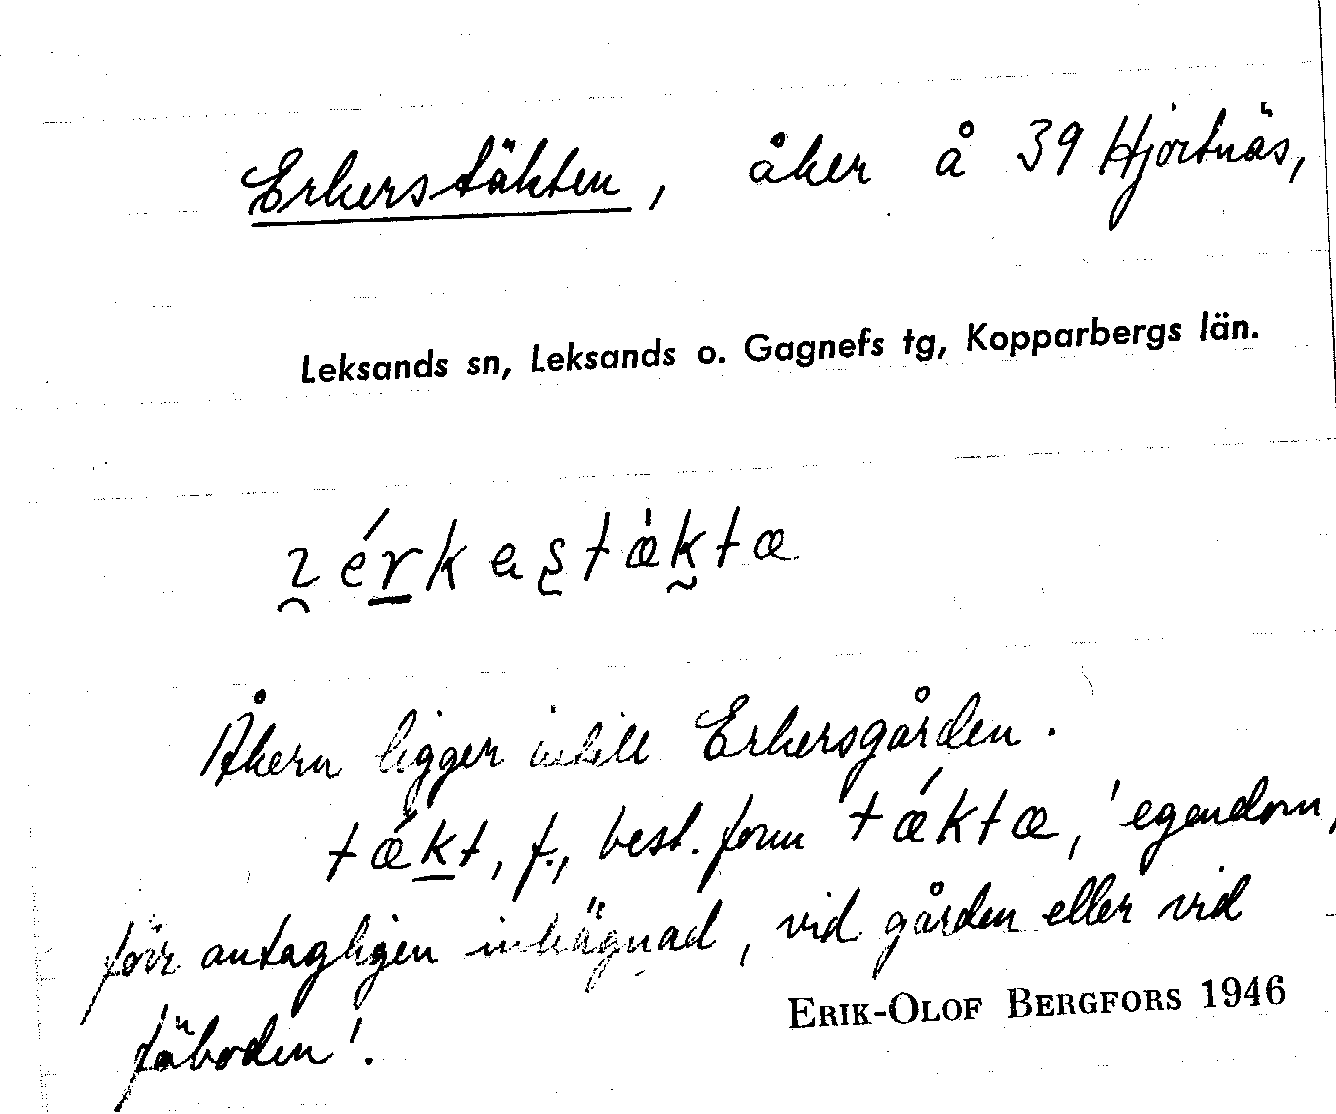 Erkerstäkten, åker å 39 Hjortnäs,
Leksands sn, Leksands o. Gagnefs tg, Kopparbergs län.
Åkern ligger intill Erkersgården.
tǽkt, f., best. form tǽktæ, 'egendom,
förr antagligen inhägnad, vid gården eller vid
fäboden'.
ERIK-OLOF BERGFORS 1946